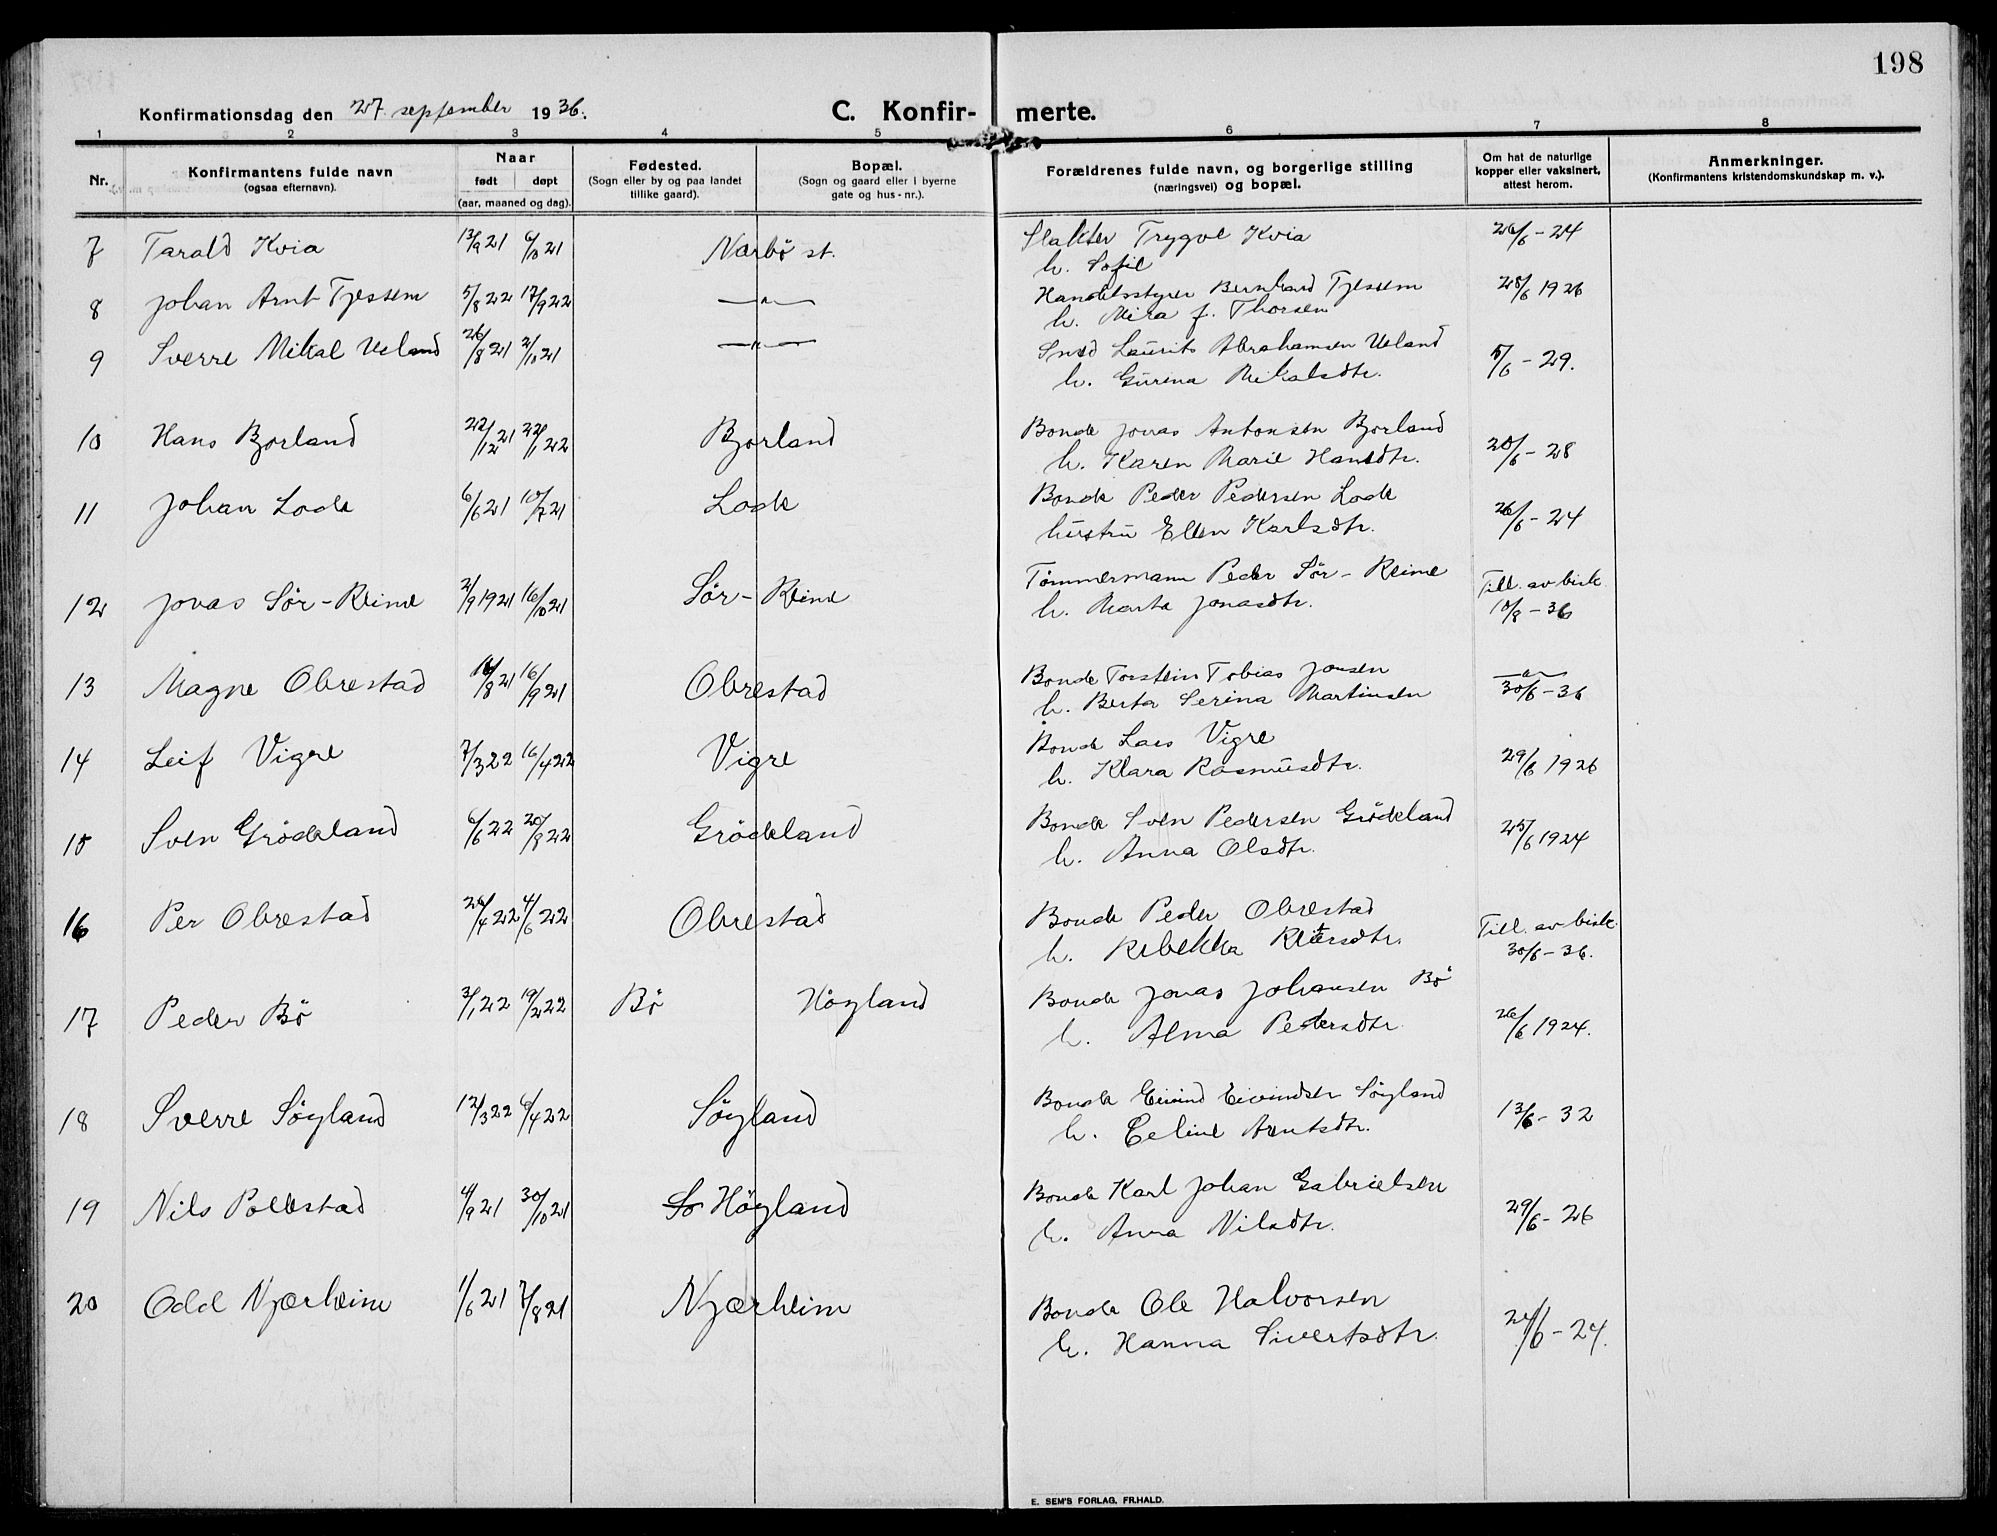 198
Konfirmationsdag den 27. september 1936.
C. Konfir- merte.
1 2 3 4 5 6 7 8
Nr.
Konfirmantens fulde navn
(ogsaa efternavn).
Naar
født døpt
(aar, maaned og dag).
Fødested.
(Sogn eller by og paa landet
tillike gaard).
Bopæl.
(Sogn og gaard eller i byerne
gate og hus-nr.).
Forældrenes fulde navn, og borgerlige stilling
(næringsvei) og bopæl.
Om hat de naturlige
kopper eller vaksinert,
attest herom.
Anmerkninger.
(Konfirmantens kristendomskundskap m. v.).
7 Tarald Kvia 13/9 21 6/10 21 Nærbø st. Slakter Trygve Kvia 26/6-24
h. Sofie
8 Johan Arnt Tjessem 5/8 22 17/9 22 —"— Handelsstyrer Bernhard Tjessem 28/6 1926
h. Mira f. Thorsen
9 Sverre Mikal Ueland 26/8 21 2/10 21 —"— Smed Laurits Abrahamsen Ueland 5/6-29.
h. Gurina Mikalsdtr.
10 Hans Bjorland 22/12 21 22/1 22 Bjorland Bonde Jonas Antonsen Bjorland 20/6-28
h. Karen Marie Hansdtr.
11 Johan Lode 6/6 21 10/7 21 Lode Bonde Peder Pedersen Lode 26/6-24
hustru Ellen Karlsdtr.
12 Jonas Sør-Reime 2/9 1921 16/10 21 Sør-Reime Tømmermann Peder Sør-Reime Till. av bisk.
h. Marta Jonasdtr. 10/8-36
13 Magne Obrestad /8 21 16/9 21 Obrestad Bonde Torstein Tobias Jonsen —"—
h. Berta Serina Martinsen 30/6-36
14 Leif Vigre 7/3 22 16/4 22 Vigre Bonde Lars Vigre 29/6 1926
h. Klara Rasmusdtr.
15 Sven Grødeland 6/6 22 20/8 22 Grødeland Bonde Sven Pedersen Grødeland 25/6 1924
h. Anna Olsdtr.
16 Per Obrestad 26/4 22 4/6 22 Obrestad Bonde Peder Obrestad Till. av bisk.
h. Rebekka Reiersdtr. 30/6-36.
17 Peder Bø 3/1 22 19/2 22 Bø Høyland Bonde Jonas Johansen Bø 26/6 1924.
h. Alma Pedersdtr.
18 Sverre Søyland 12/3 22 6/4 22 Søyland Bonde Eivind Eivindsen Søyland 13/6-32
h. Eeline Arntsdtr.
19 Nils Pollestad 4/9 21 30/10 21 So Høyland Bonde Karl Johan Gabrielsen 29/6-26
h. Anna Nilsdtr.
20 Odd Njærheim 1/6 21 7/8 21 Njærheim Bonde Ole Halvorsen 24/6-24.
h. Hanna Sivertsdtr.
E. SEM'S FORLAG, FR.HALD.